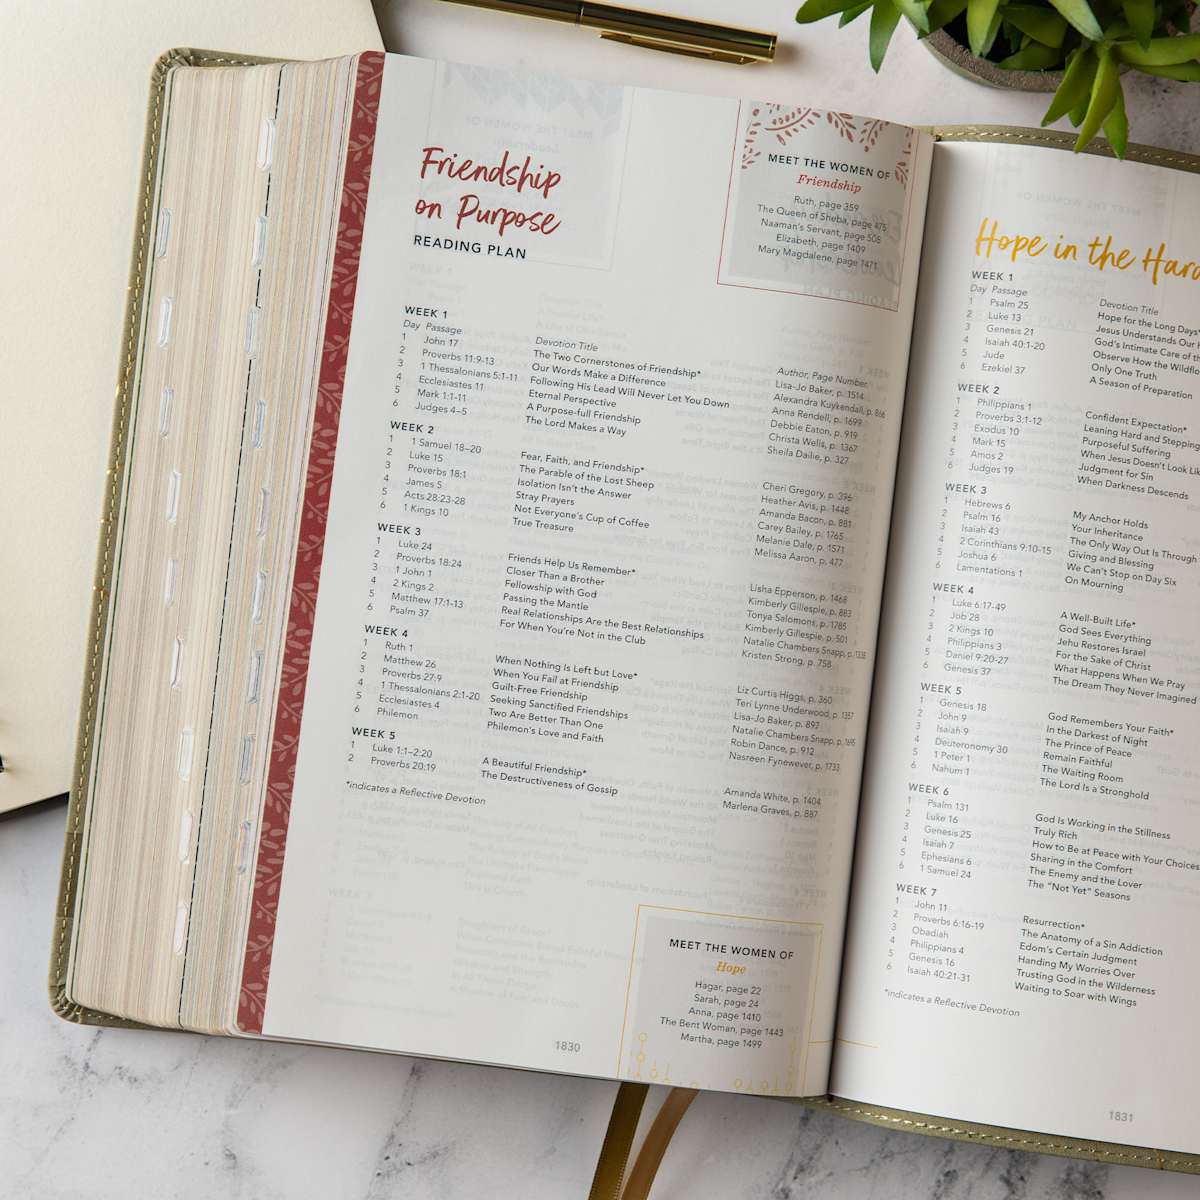 Friendship
on Purpose
READING PLAN
MEET THE WOMEN OF
Friendship
Ruth, page 359
The Queen of Sheba, page 475
Naaman's Servant, page 508
Elizabeth, page 1409
Mary Magdalene, page 1471
WEEK 1
Day Passage Devotion Title Author, Page Number
1 John 17 The Two Cornerstones of Friendship* Lisa-Jo Baker, p. 1514
2 Proverbs 11:9-13 Our Words Make a Difference Alexandra Kuykendall, p. 866
3 1 Thessalonians 5:1-11 Following His Lead Will Never Let You Down Anna Rendell, p. 1699
4 Ecclesiastes 11 Eternal Perspective Debbie Eaton, p. 919
5 Mark 1:1-11 A Purpose-full Friendship Christa Wells, p. 1367
6 Judges 4–5 The Lord Makes a Way Sheila Dailie, p. 327
WEEK 2
1 1 Samuel 18–20 Fear, Faith, and Friendship* Cheri Gregory, p. 396
2 Luke 15 The Parable of the Lost Sheep Heather Avis, p. 1448
3 Proverbs 18:1 Isolation Isn't the Answer Amanda Bacon, p. 881
4 James 5 Stray Prayers Carey Bailey, p. 1765
5 Acts 28:23-28 Not Everyone's Cup of Coffee Melanie Dale, p. 1571
6 1 Kings 10 True Treasure Melissa Aaron, p. 477
WEEK 3
1 Luke 24 Friends Help Us Remember* Lisha Epperson, p. 1468
2 Proverbs 18:24 Closer Than a Brother Kimberly Gillespie, p. 883
3 1 John 1 Fellowship with God Tonya Salomons, p. 1785
4 2 Kings 2 Passing the Mantle Kimberly Gillespie, p. 501
5 Matthew 17:1-13 Real Relationships Are the Best Relationships Natalie Chambers Snapp, p. 1338
6 Psalm 37 For When You're Not in the Club Kristen Strong, p. 758
WEEK 4
1 Ruth 1 When Nothing Is Left but Love* Liz Curtis Higgs, p. 360
2 Matthew 26 When You Fail at Friendship Teri Lynne Underwood, p. 1357
3 Proverbs 27:9 Guilt-Free Friendship Lisa-Jo Baker, p. 897
4 1 Thessalonians 2:1-20 Seeking Sanctified Friendships Natalie Chambers Snapp, p. 1695
5 Ecclesiastes 4 Two Are Better Than One Robin Dance, p. 912
6 Philemon Philemon's Love and Faith Nasreen Fynewever, p. 1733
WEEK 5
1 Luke 1:1–2:20 A Beautiful Friendship* Amanda White, p. 1404
2 Proverbs 20:19 The Destructiveness of Gossip Marlena Graves, p. 887
*indicates a Reflective Devotion
MEET THE WOMEN OF
Hope
Hagar, page 22
Sarah, page 24
Anna, page 1410
The Bent Woman, page 1443
Martha, page 1499
1830
Hope in the Hard
WEEK 1
Day Passage Devotion Title
1 Psalm 25 Hope for the Long Days*
2 Luke 13 Jesus Understands Our
3 Genesis 21 God's Intimate Care of th
4 Isaiah 40:1-20 Observe How the Wildflo
5 Jude Only One Truth
6 Ezekiel 37 A Season of Preparation
WEEK 2
1 Philippians 1 Confident Expectation*
2 Proverbs 3:1-12 Leaning Hard and Stepping
3 Exodus 10 Purposeful Suffering
4 Mark 15 When Jesus Doesn't Look Lik
5 Amos 2 Judgment for Sin
6 Judges 19 When Darkness Descends
WEEK 3
1 Hebrews 6 My Anchor Holds
2 Psalm 16 Your Inheritance
3 Isaiah 43 The Only Way Out Is Through
4 2 Corinthians 9:10-15 Giving and Blessing
5 Joshua 6 We Can't Stop on Day Six
6 Lamentations 1 On Mourning
WEEK 4
1 Luke 6:17-49 A Well-Built Life*
2 Job 28 God Sees Everything
3 2 Kings 10 Jehu Restores Israel
4 Philippians 3 For the Sake of Christ
5 Daniel 9:20-27 What Happens When We Pray
6 Genesis 37 The Dream They Never Imagined
WEEK 5
1 Genesis 18 God Remembers Your Faith*
2 John 9 In the Darkest of Night
3 Isaiah 9 The Prince of Peace
4 Deuteronomy 30 Remain Faithful
5 1 Peter 1 The Waiting Room
6 Nahum 1 The Lord Is a Stronghold
WEEK 6
1 Psalm 131 God Is Working in the Stillness
2 Luke 16 Truly Rich
3 Genesis 25 How to Be at Peace with Your Choices
4 Isaiah 7 Sharing in the Comfort
5 Ephesians 6 The Enemy and the Lover
6 1 Samuel 24 The "Not Yet" Seasons
WEEK 7
1 John 11 Resurrection*
2 Proverbs 6:16-19 The Anatomy of a Sin Addiction
3 Obadiah Edom's Certain Judgment
4 Philippians 4 Handing My Worries Over
5 Genesis 16 Trusting God in the Wilderness
6 Isaiah 40:21-31 Waiting to Soar with Wings
*indicates a Reflective Devotion
1831